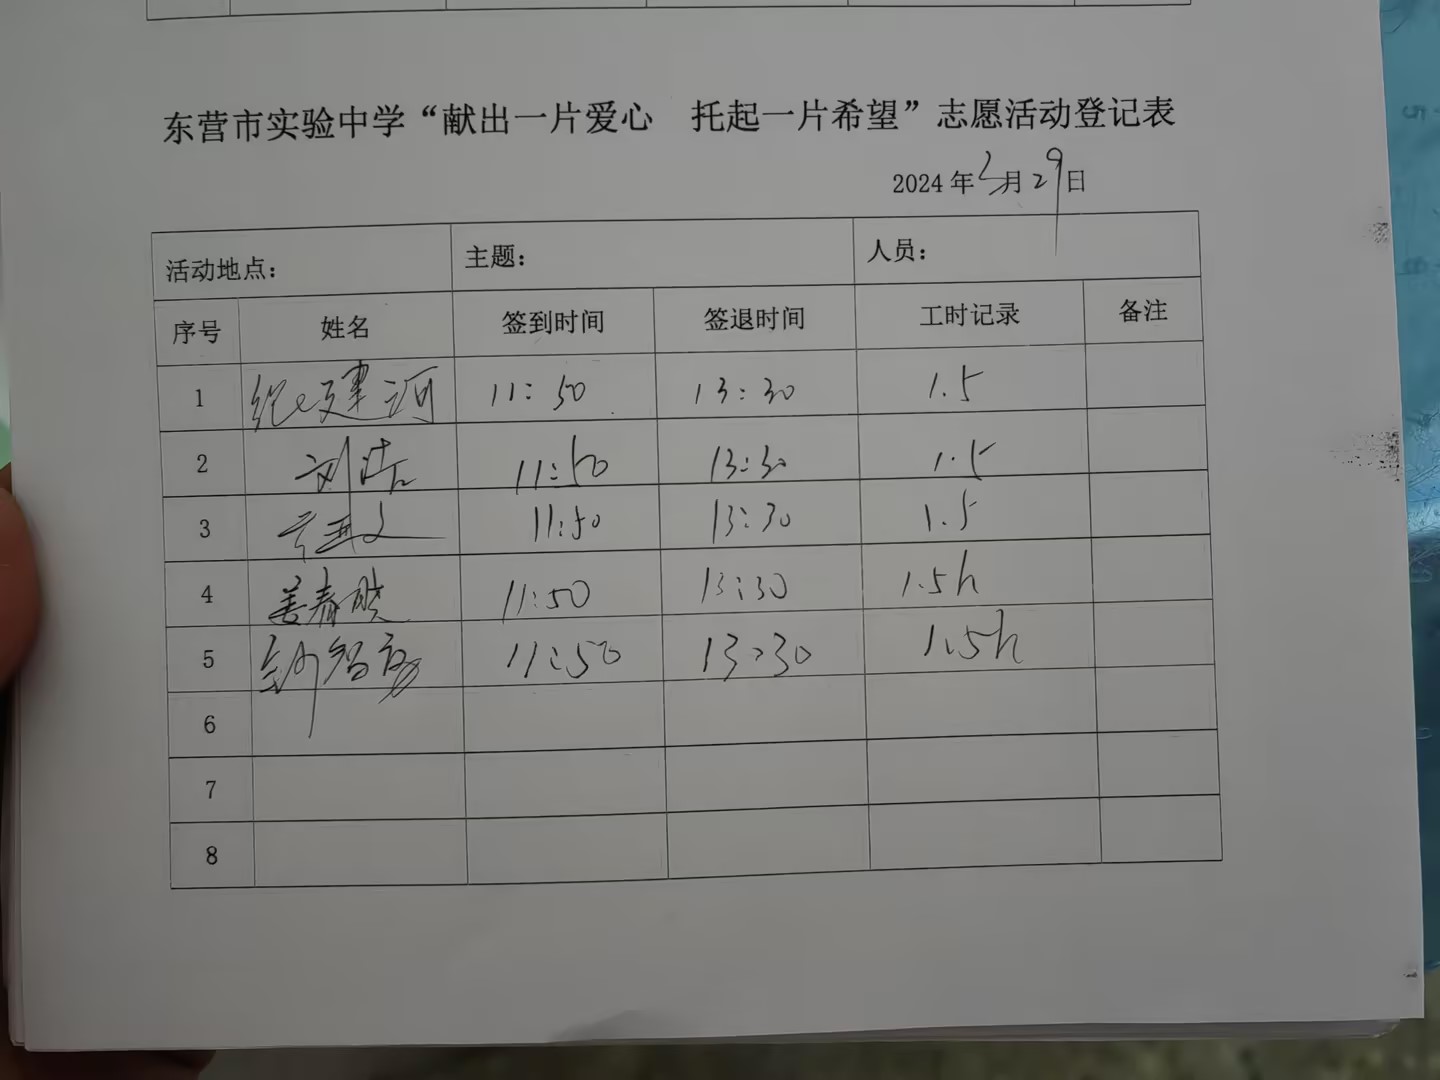 东营市实验中学“献出一片爱心 托起一片希望”志愿活动登记表
2024年3月29日
活动地点： 主题： 人员：
序号 姓名 签到时间 签退时间 工时记录 备注
1 纪建河 11:50 13:30 1.5
2 刘浩 11:50 13:30 1.5
3 11:50 13:30 1.5
4 姜春晓 11:50 13:30 1.5h
5 11:50 13:30 1.5h
6
7
8